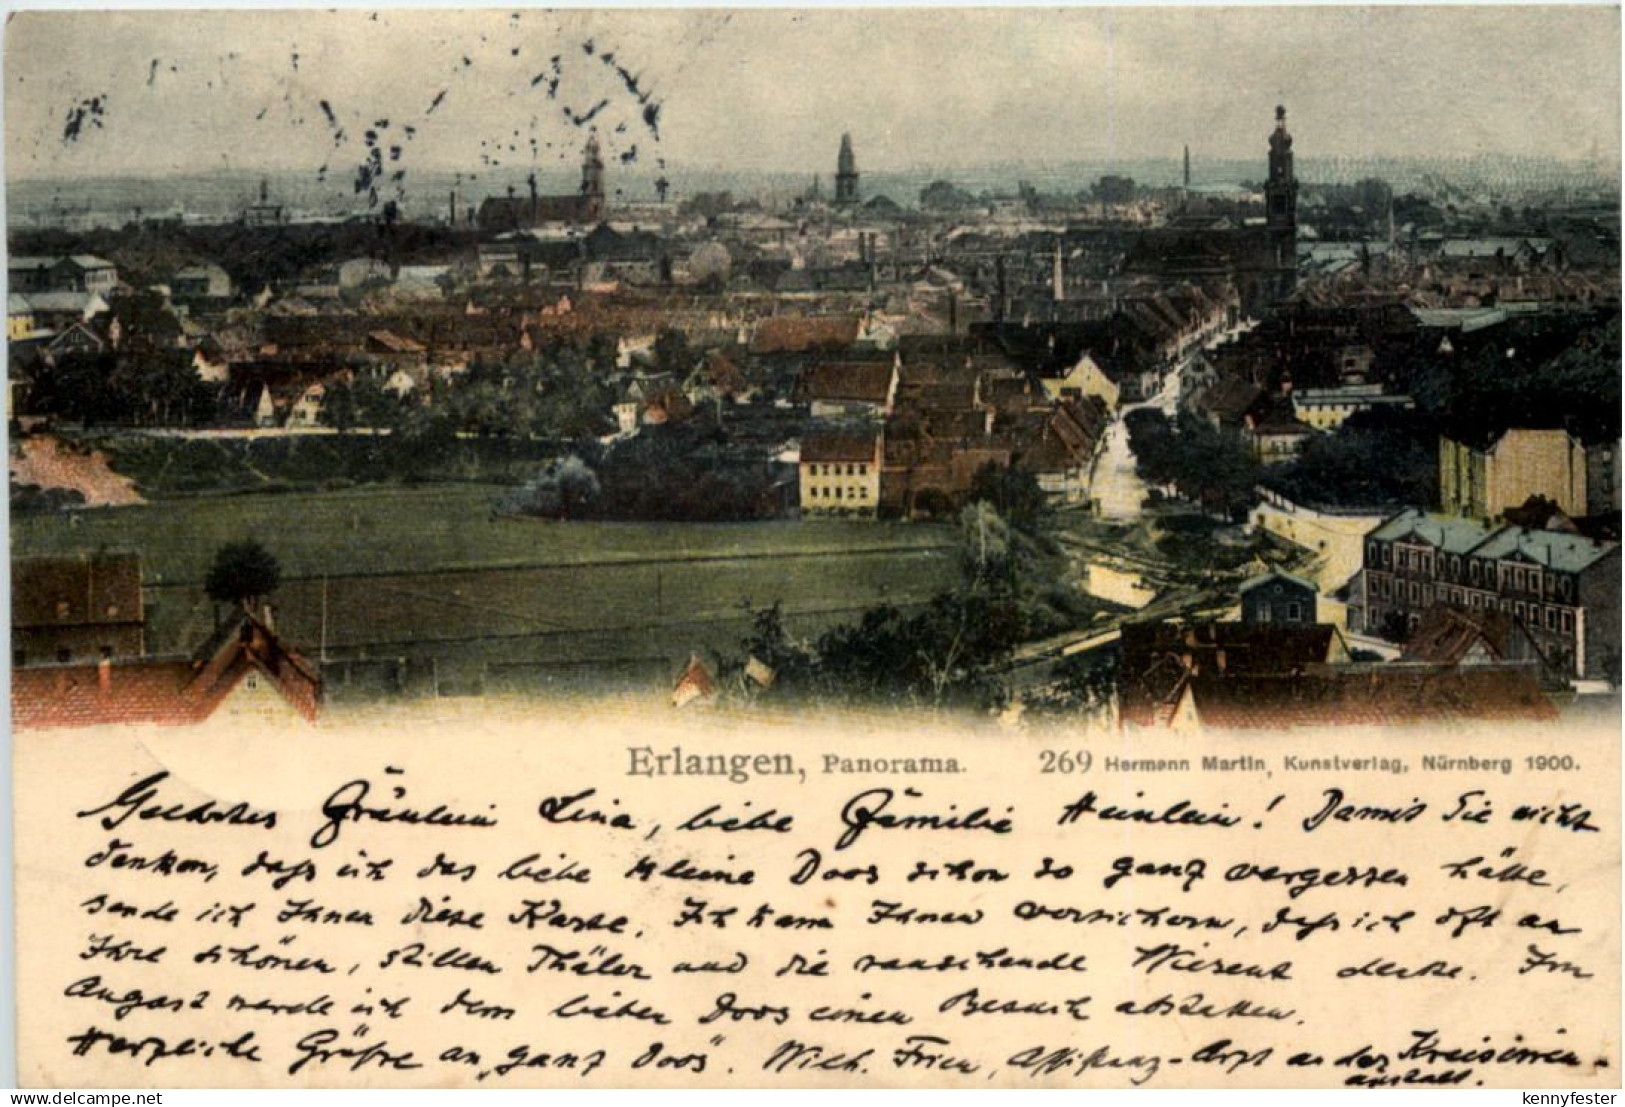 Erlangen, Panorama. 269 Hermann Martin, Kunstverlag, Nürnberg 1900.
Geehrtes Fräulein Lina, liebe Familie Heinlein! Damit Sie nicht
denken, daß ich das liebe kleine Doos schon so ganz vergessen hätte,
sende ich Ihnen diese Karte. Ich kann Ihnen versichern, daß ich oft an
Ihre schönen, stillen Thäler und die rauschende Wiesent denke. Im
August werde ich dem lieben Doos einen Besuch abstatten.
Herzliche Grüße an "ganz Doos". Mich. Assistenz-Arzt an der Kreisirren-
anstalt.
delcampe.net
kennyfester